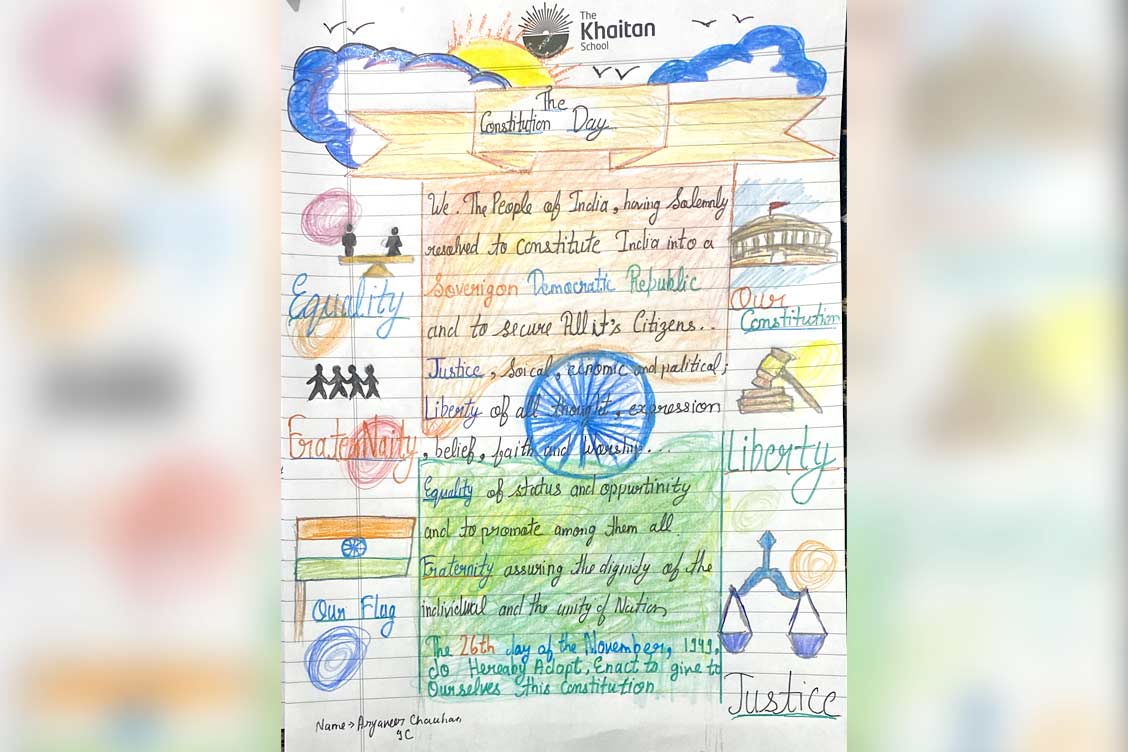 The
Khaitan
School
The
Constitution Day
We. The People of India, having Solemnly
resolved to constitute India into a
Soverigon Democratic Republic
and to secure All it's Citizens..
Justice, Soical, ecnomic and palitical;
Liberty of all thought, expression
, belief, faith and Warship...
Equality of status and oppurtinity
and to promate among them all.
Fraternity assuring the dignidy of the
individual and the unity of Nation
The 26th day of the November, 1949,
do Hereaby Adopt, Enact to give to
Ourselves this constitution
Equality
FraterNaity
Our Flag
Our
Constitution
Liberty
Justice
Name → Aryaveer Chauhan
9C